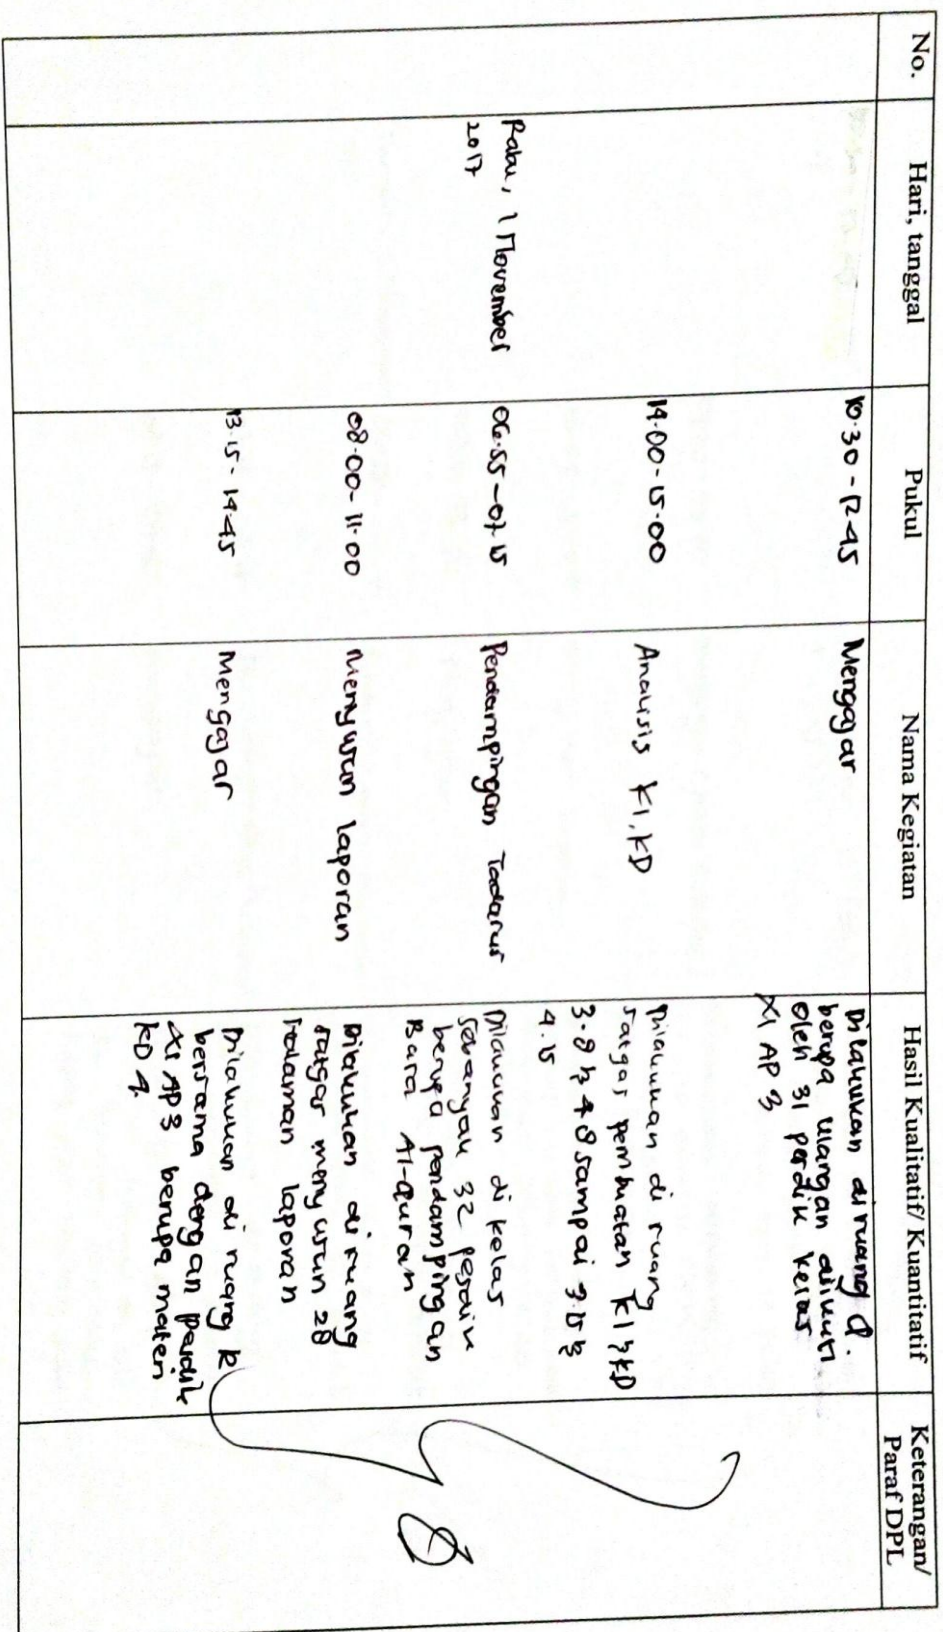 No.
Hari, tanggal
Pukul
Nama Kegiatan
Hasil Kualitatif/ Kuantitatif
Keterangan/
Paraf DPL
10.30 - 12.45
Mengajar
Dilakukan di ruang
berupa ulangan diikuti
oleh 31 perdik kelas
XI AP 3
14.00 - 15.00
Analisis KI, KD
Dilakukan di ruang
satgas pembuatan KI & KD
3.8 & 4.8 sampai 3.15 &
4.15
Rabu, 1 November
2017
06.55 - 07.15
Pendampingan Tadarus
Dilakukan di kelas
Sebanyak 32 perdik
berupa pendampingan
Baca Al-Quran
08.00 - 11.00
Menyusun laporan
Dilakukan di ruang
satgas menyusun 28
halaman laporan
13.15 - 14.45
Mengajar
Dilakukan di ruang k
bersama dengan perdik
XI AP3 berupa materi
KD